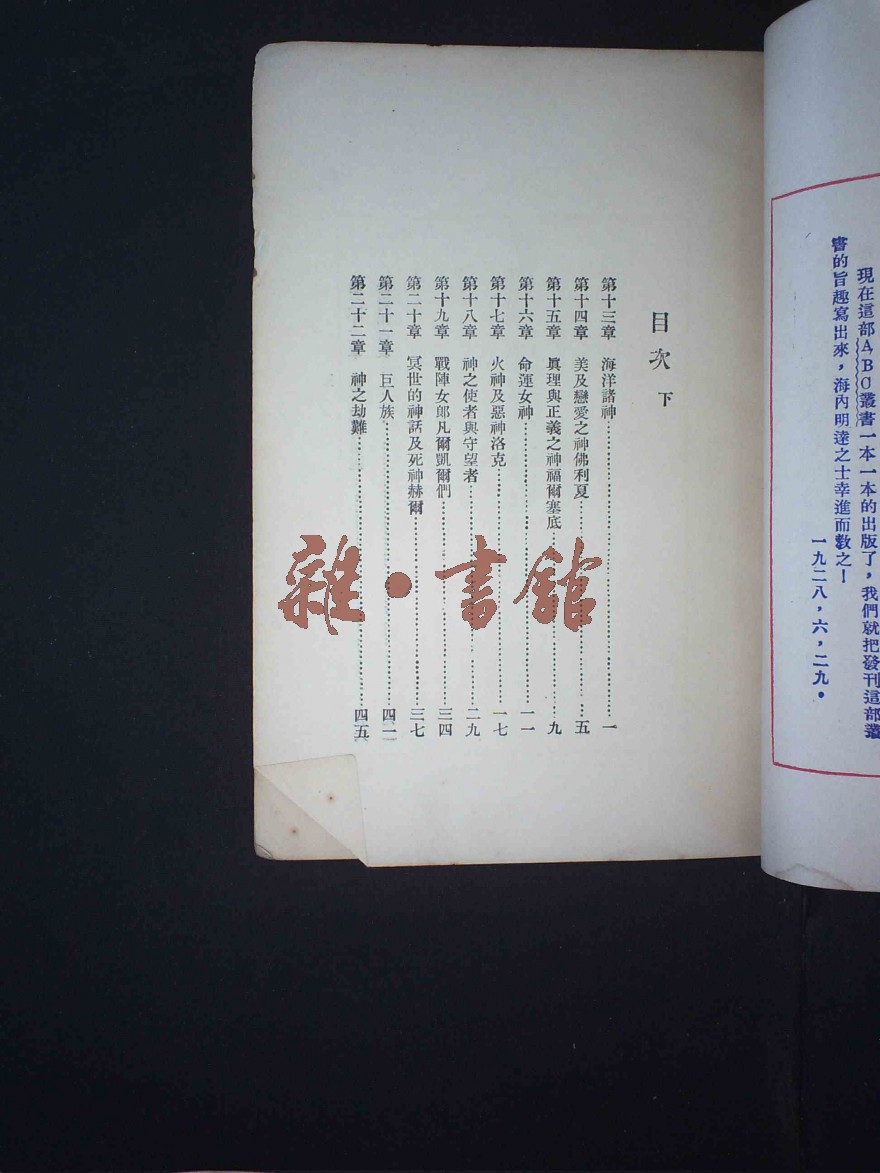 現在這部ABC叢書一本一本的出版了，我們就把發刊這部叢
書的旨趣寫出來，海內明達之士幸進而敎之！
一九二八，六，二九。
目次 下
第十三章 海洋諸神…一
第十四章 美及戀愛之神佛利夏…五
第十五章 眞理與正義之神福爾塞底…九
第十六章 命運女神…一一
第十七章 火神及惡神洛克…一七
第十八章 神之使者與守望者…二九
第十九章 戰陣女郞凡爾凱爾們…三四
第二十章 冥世的神話及死神赫爾…三七
第二十一章 巨人族…四一
第二十二章 神之劫難…四五
雜·書館